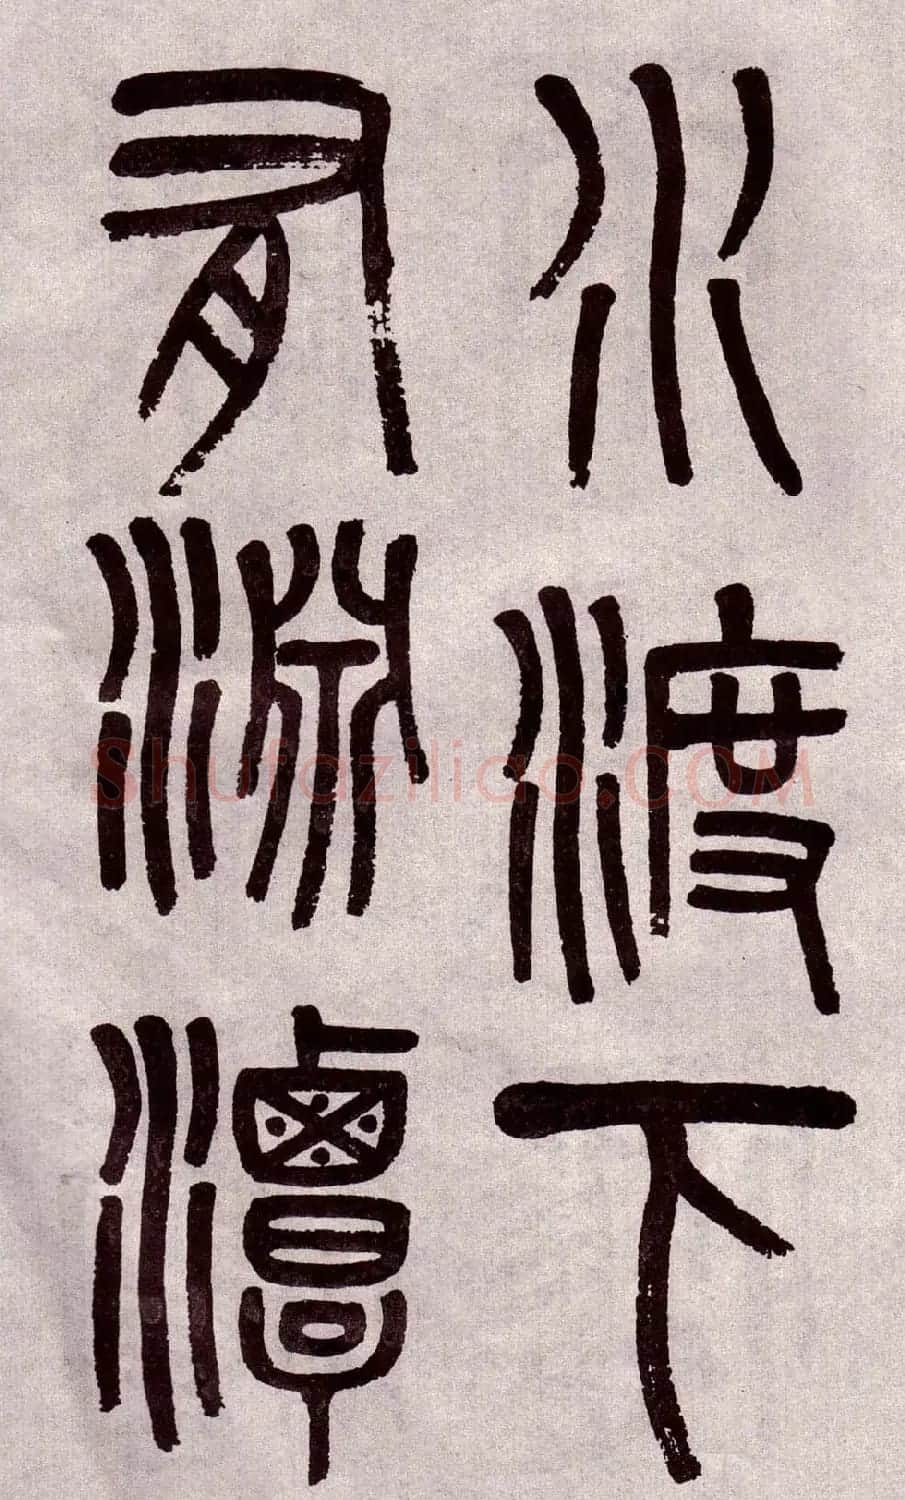 水渡下
有淵潭
Shufaziliao.COM